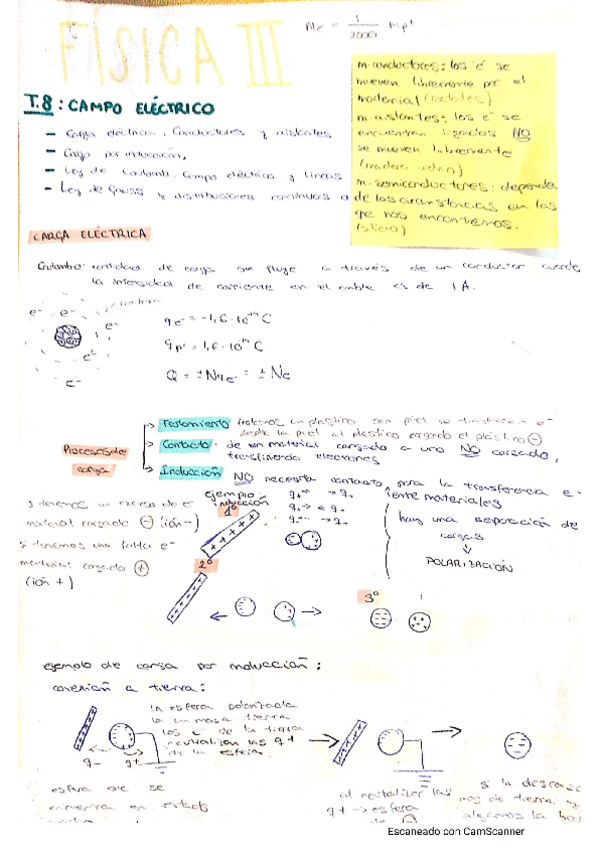 FISICA III
Me = 1/2000 mp+
T.8: CAMPO ELÉCTRICO
- Carga eléctrica. Conductores y aislantes
- Carga por inducción.
- Ley de Coulomb. Campo eléctrico y líneas
- Ley de Gauss y distribuciones continuas
m. conductores: los e⁻ se
mueven libremente por el
material (metales)
m. aislantes: los e⁻ se
encuentran ligados NO
se mueven libremente
(madera vidrio)
m. semiconductores: depende
de las circunstancias en las
que nos encontremos.
(silicio)
CARGA ELÉCTRICA
Culombio: cantidad de carga que fluye a través de un conductor cuando
la intensidad de corriente en el cable es de 1A.
e⁻ e⁻ e⁻
e⁻
e⁻
qe⁻ = -1,6·10⁻¹⁹ C
qp⁺ = 1,6·10⁻¹⁹ C
Q = ±Nqe⁻ = ±Ne
Procesos de
carga
Frotamiento frotamos un plástico con piel se transfieren e⁻
desde la piel al plástico cargando el plástico ⊖
Contacto: de un material cargado a uno NO cargado,
transfiriendo electrones
Inducción NO necesita contacto, para la transferencia e⁻
entre materiales
si tenemos un exceso de e⁻
material cargado ⊖ (ión -)
si tenemos una falta e⁻
material cargado ⊕
(ión +)
ejemplo
inducción
1º
hay una separación de
cargas
POLARIZACIÓN
2º
3º
ejemplo de carga por inducción:
conexión a tierra:
la esfera polarizada
los e⁻ de la tierra
neutralizan las q+
de la esfera.
q- q+
esfera que se
encuentra en estado
al neutralizar las
q+ → esfera
de tierra y
Escaneado con CamScanner